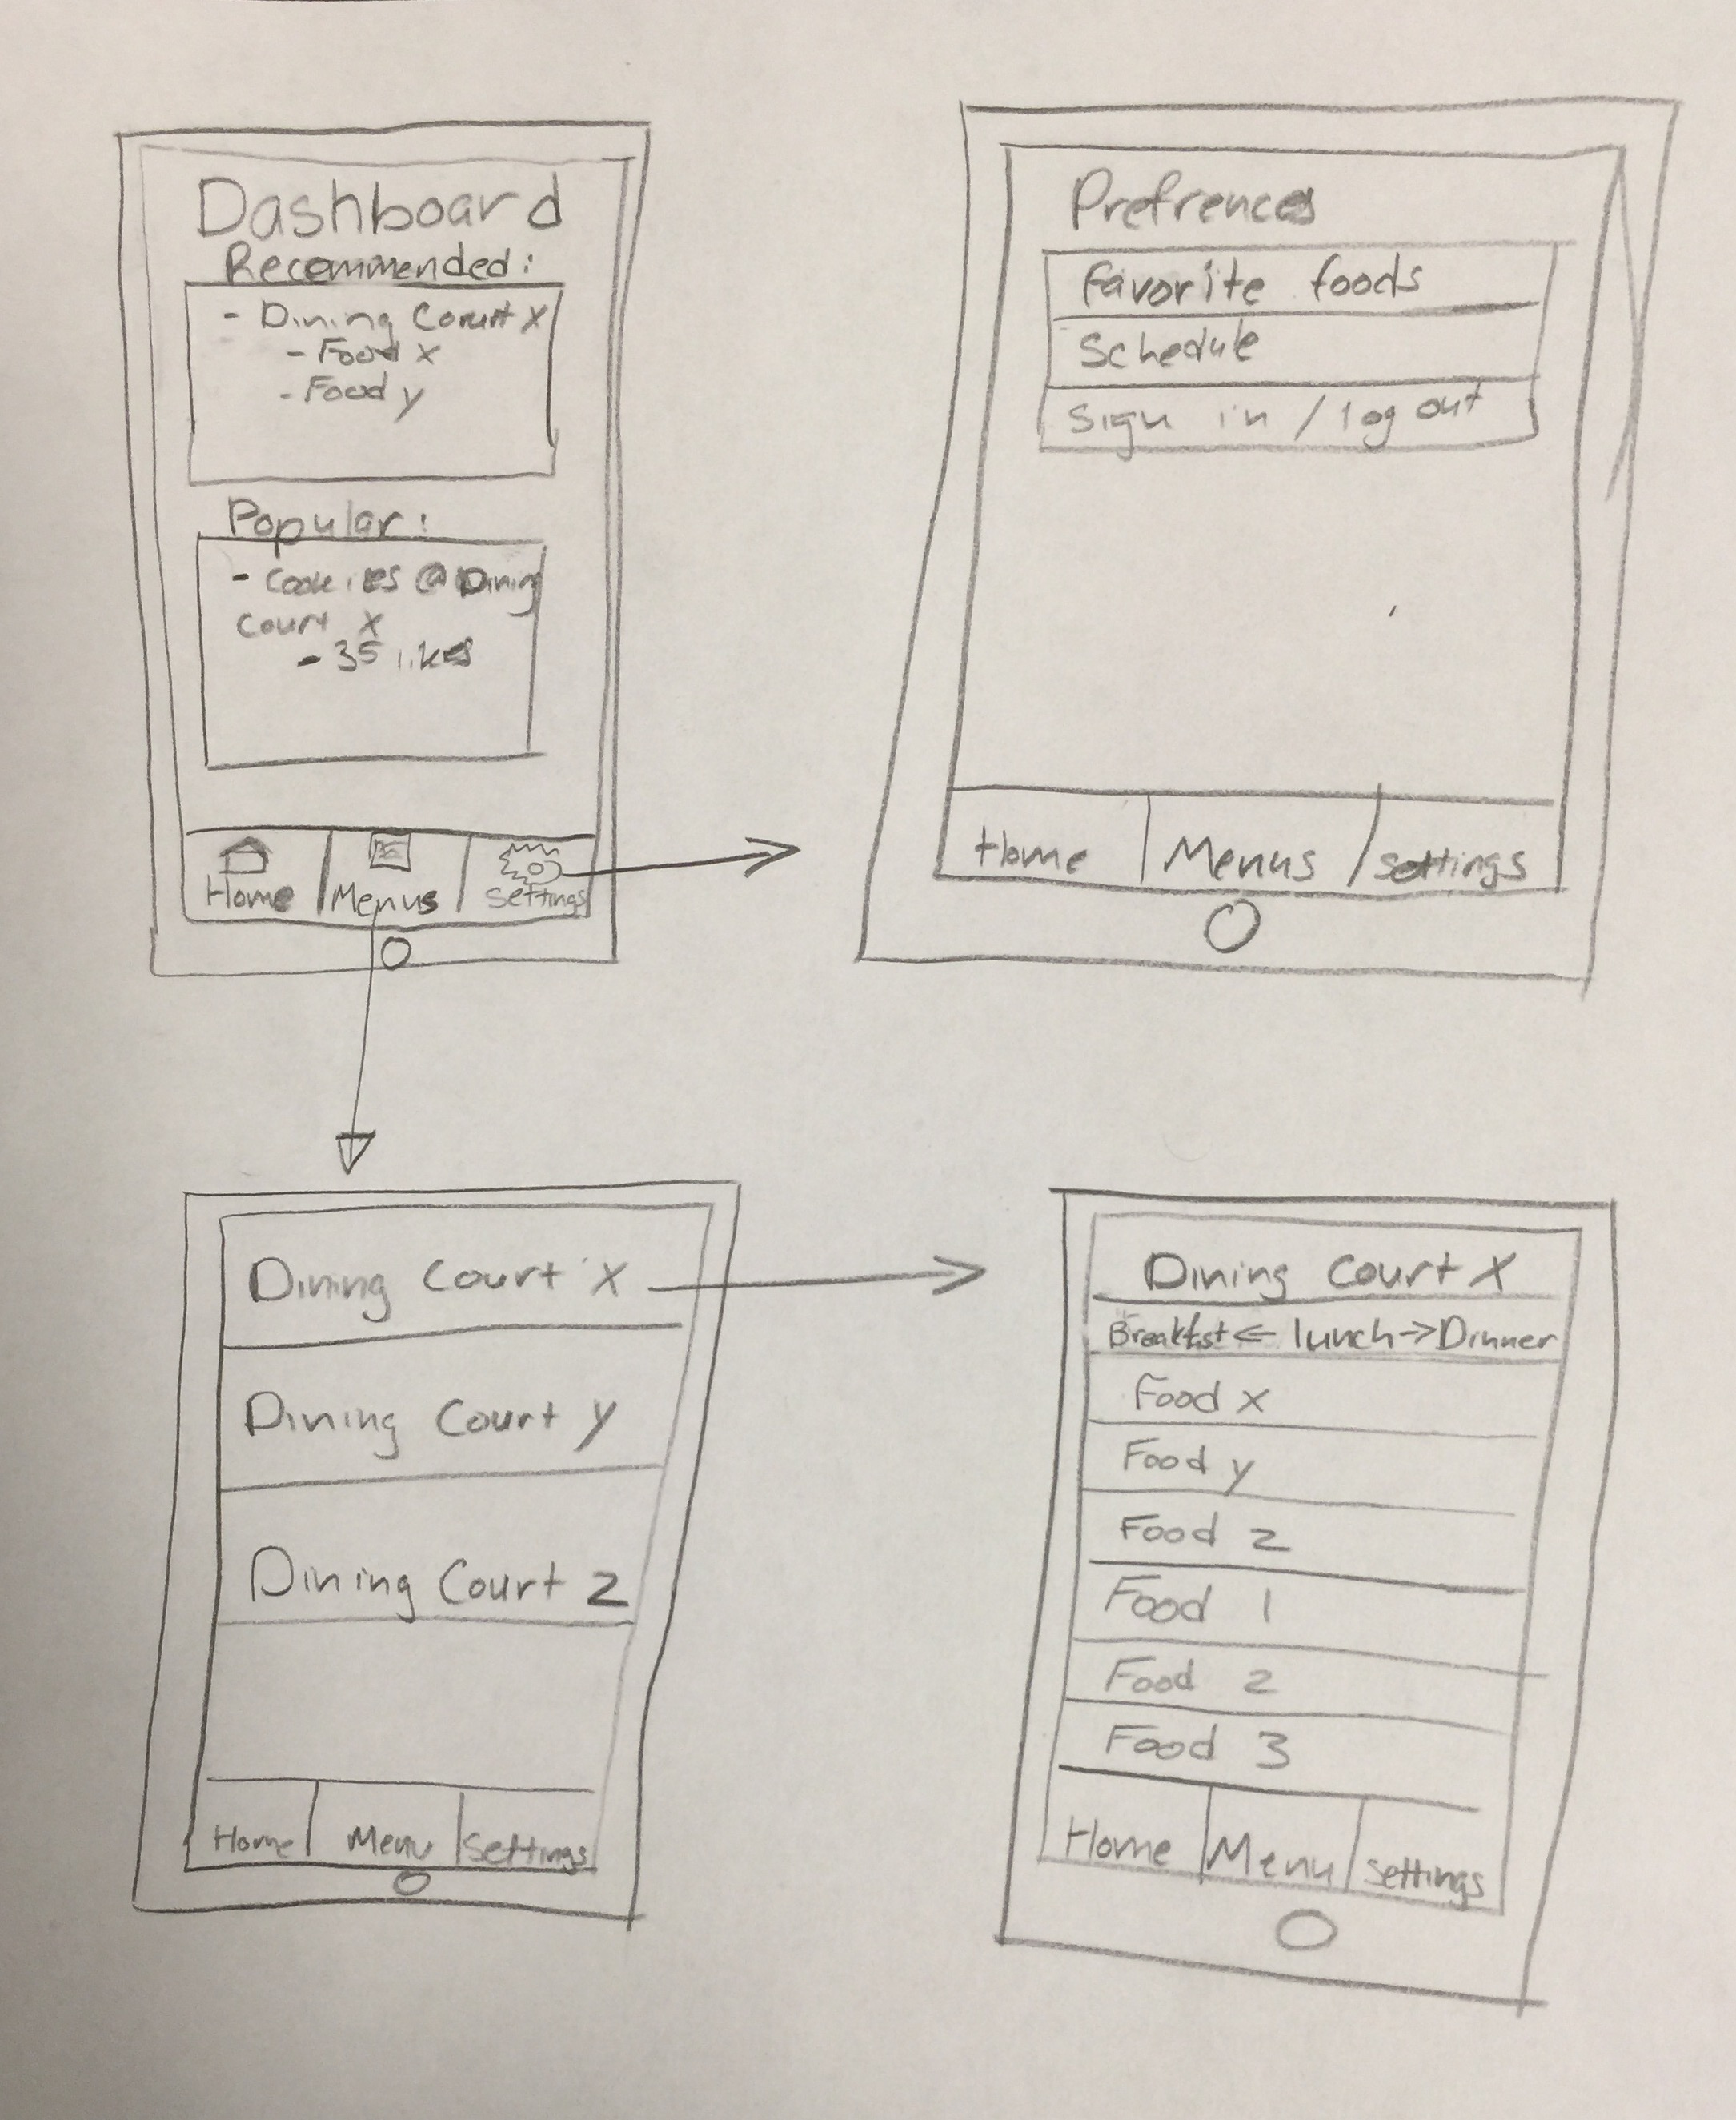 Dashboard
Recommended:
- Dining Court X
- Food x
- Food y
Popular:
- Cookies @ Dining
Court X
- 35 likes
Home Menus Settings
Prefrences
Favorite foods
Schedule
Sign in / log out
Home Menus Settings
Dining Court X
Dining Court y
Dining Court z
Home Menu Settings
Dining Court X
Breakfast ← lunch → Dinner
Food x
Food y
Food z
Food 1
Food 2
Food 3
Home Menu Settings